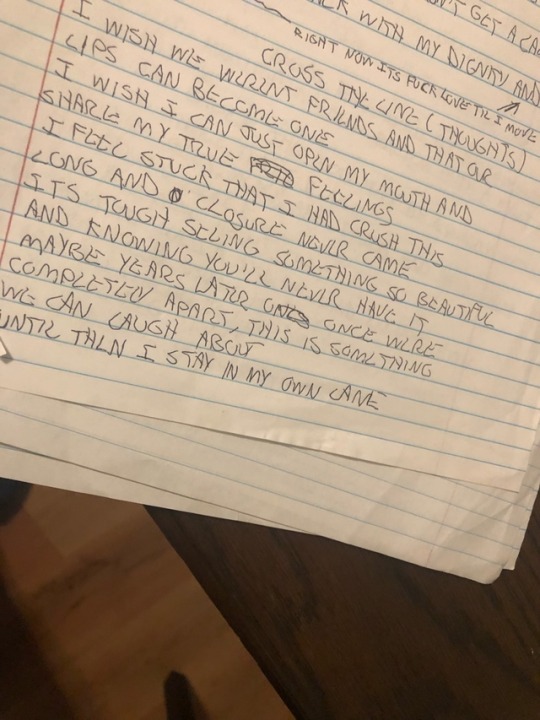 N'T GET A
WITH MY DIGNITY AND
RIGHT NOW ITS FUCK LOVE TIL I MOVE
CROSS THE LINE (THOUGHTS)
I WISH WE WERENT FRIENDS AND THAT OUR
LIPS CAN BECOME ONE
I WISH I CAN JUST OPEN MY MOUTH AND
SHARE MY TRUE FEELINGS
I FEEL STUCK THAT I HAD CRUSH THIS
LONG AND CLOSURE NEVER CAME
ITS TOUGH SEEING SOMETHING SO BEAUTIFUL
AND KNOWING YOU'LL NEVER HAVE IT
MAYBE YEARS LATER ONCE WE'RE
COMPLETELY APART, THIS IS SOMETHING
WE CAN LAUGH ABOUT
UNTIL THEN I STAY IN MY OWN LANE